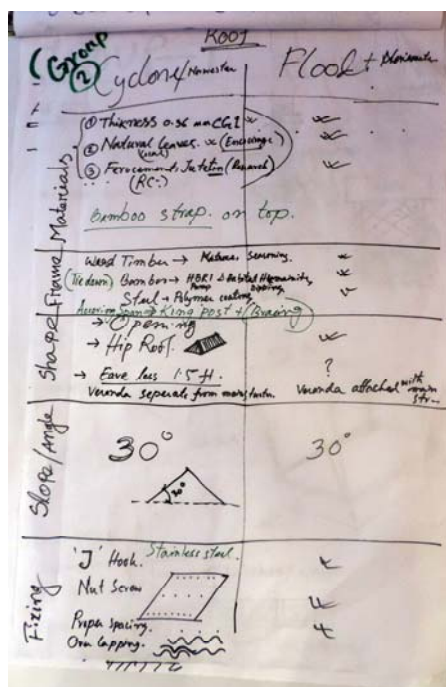 Roof
(Group
2)
Cyclone/ Norwester
Flood +
Materials
① Thikness 0.36 mm CGI
② Natural leaves. (Encourage)
(local)
③ Ferocement, Jutetin (Research)
(RCC)
Bamboo strap. on top.
Frame
Wood Timber → Seasoning.
(Tie down) Bamboo → HBRI & Habitat Humanity
Steel → Polymer coating
King post + (Bracing)
Shape
→ Opening
→ Hip Roof.
→ Eave less 1.5 ft.
?
Veronda seperate from
Veronda attached with main str..
Slope/Angle
30°
30°
30°
Fixing
'J' Hook. Stainless steel.
Nut Screw
Proper spacing.
Over lapping.